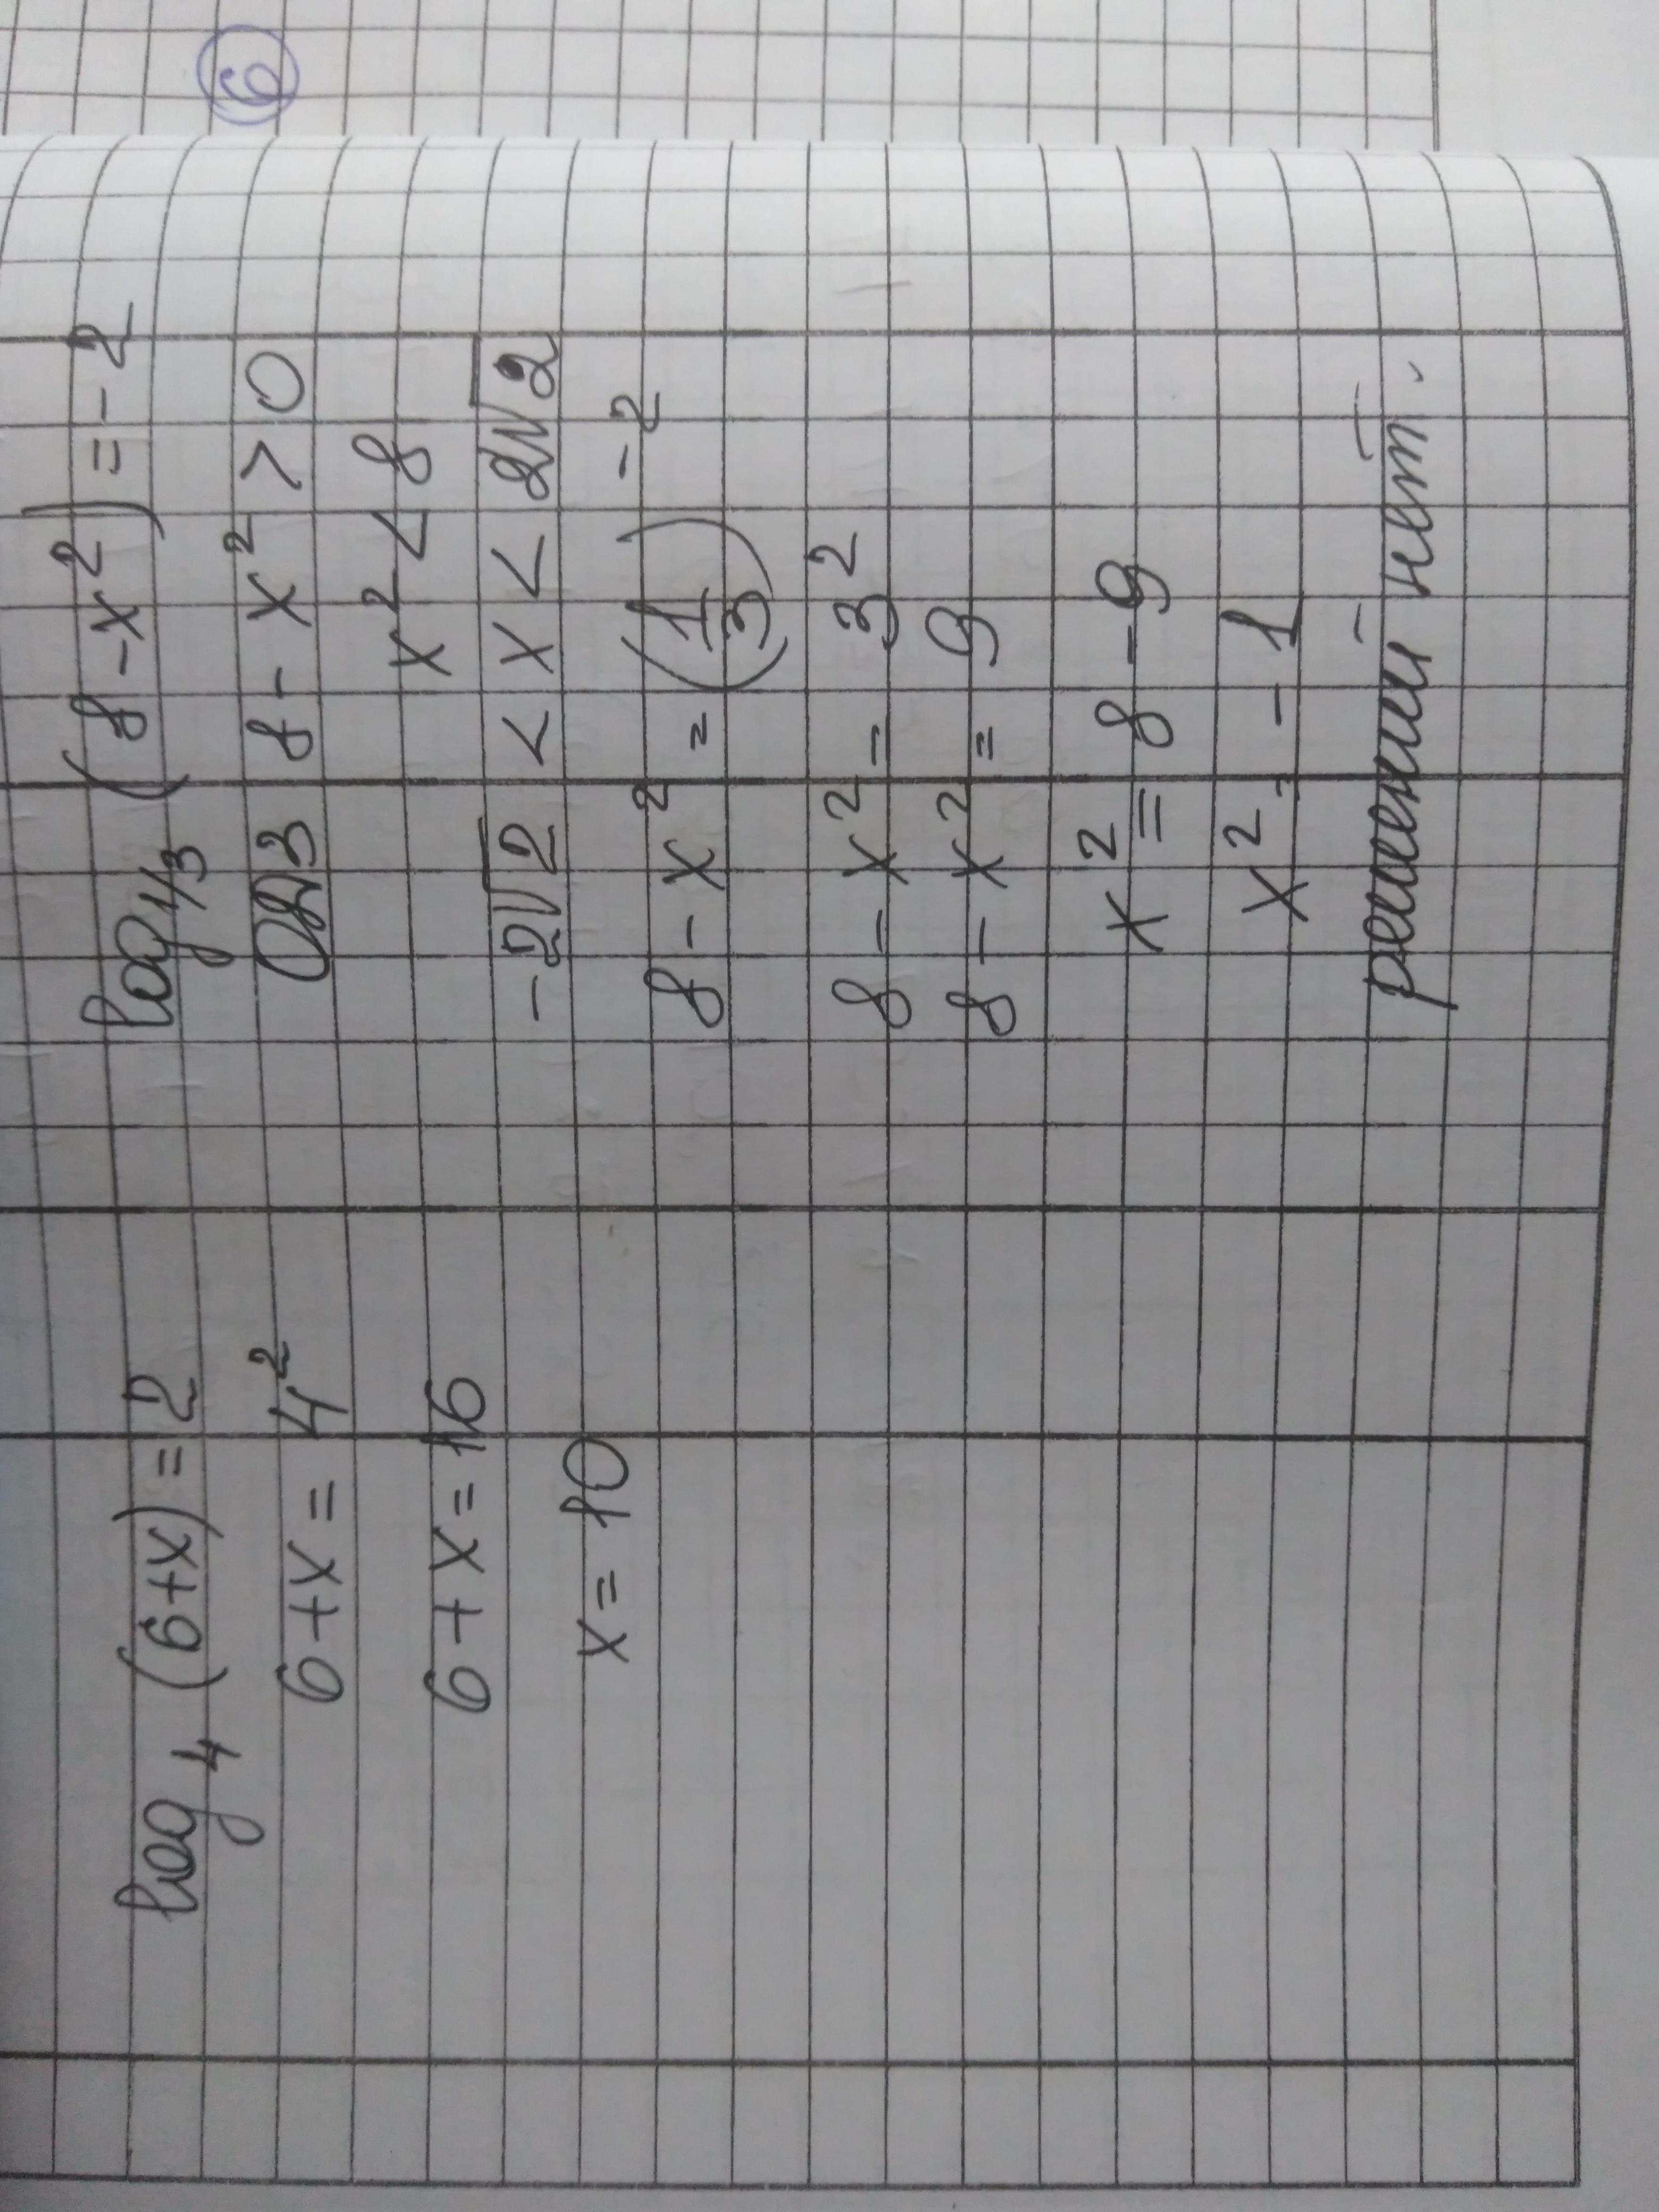 6
log₄ (6+x) = 2
6+x = 4²
6+x = 16
x = 10
log 1/3 (8-x²) = -2
ОДЗ 8 - x² > 0
x² < 8
-2√2 < x < 2√2
8 - x² = (1/3)⁻²
8 - x² = 3²
8 - x² = 9
x² = 8 - 9
x² = -1
решений нет.